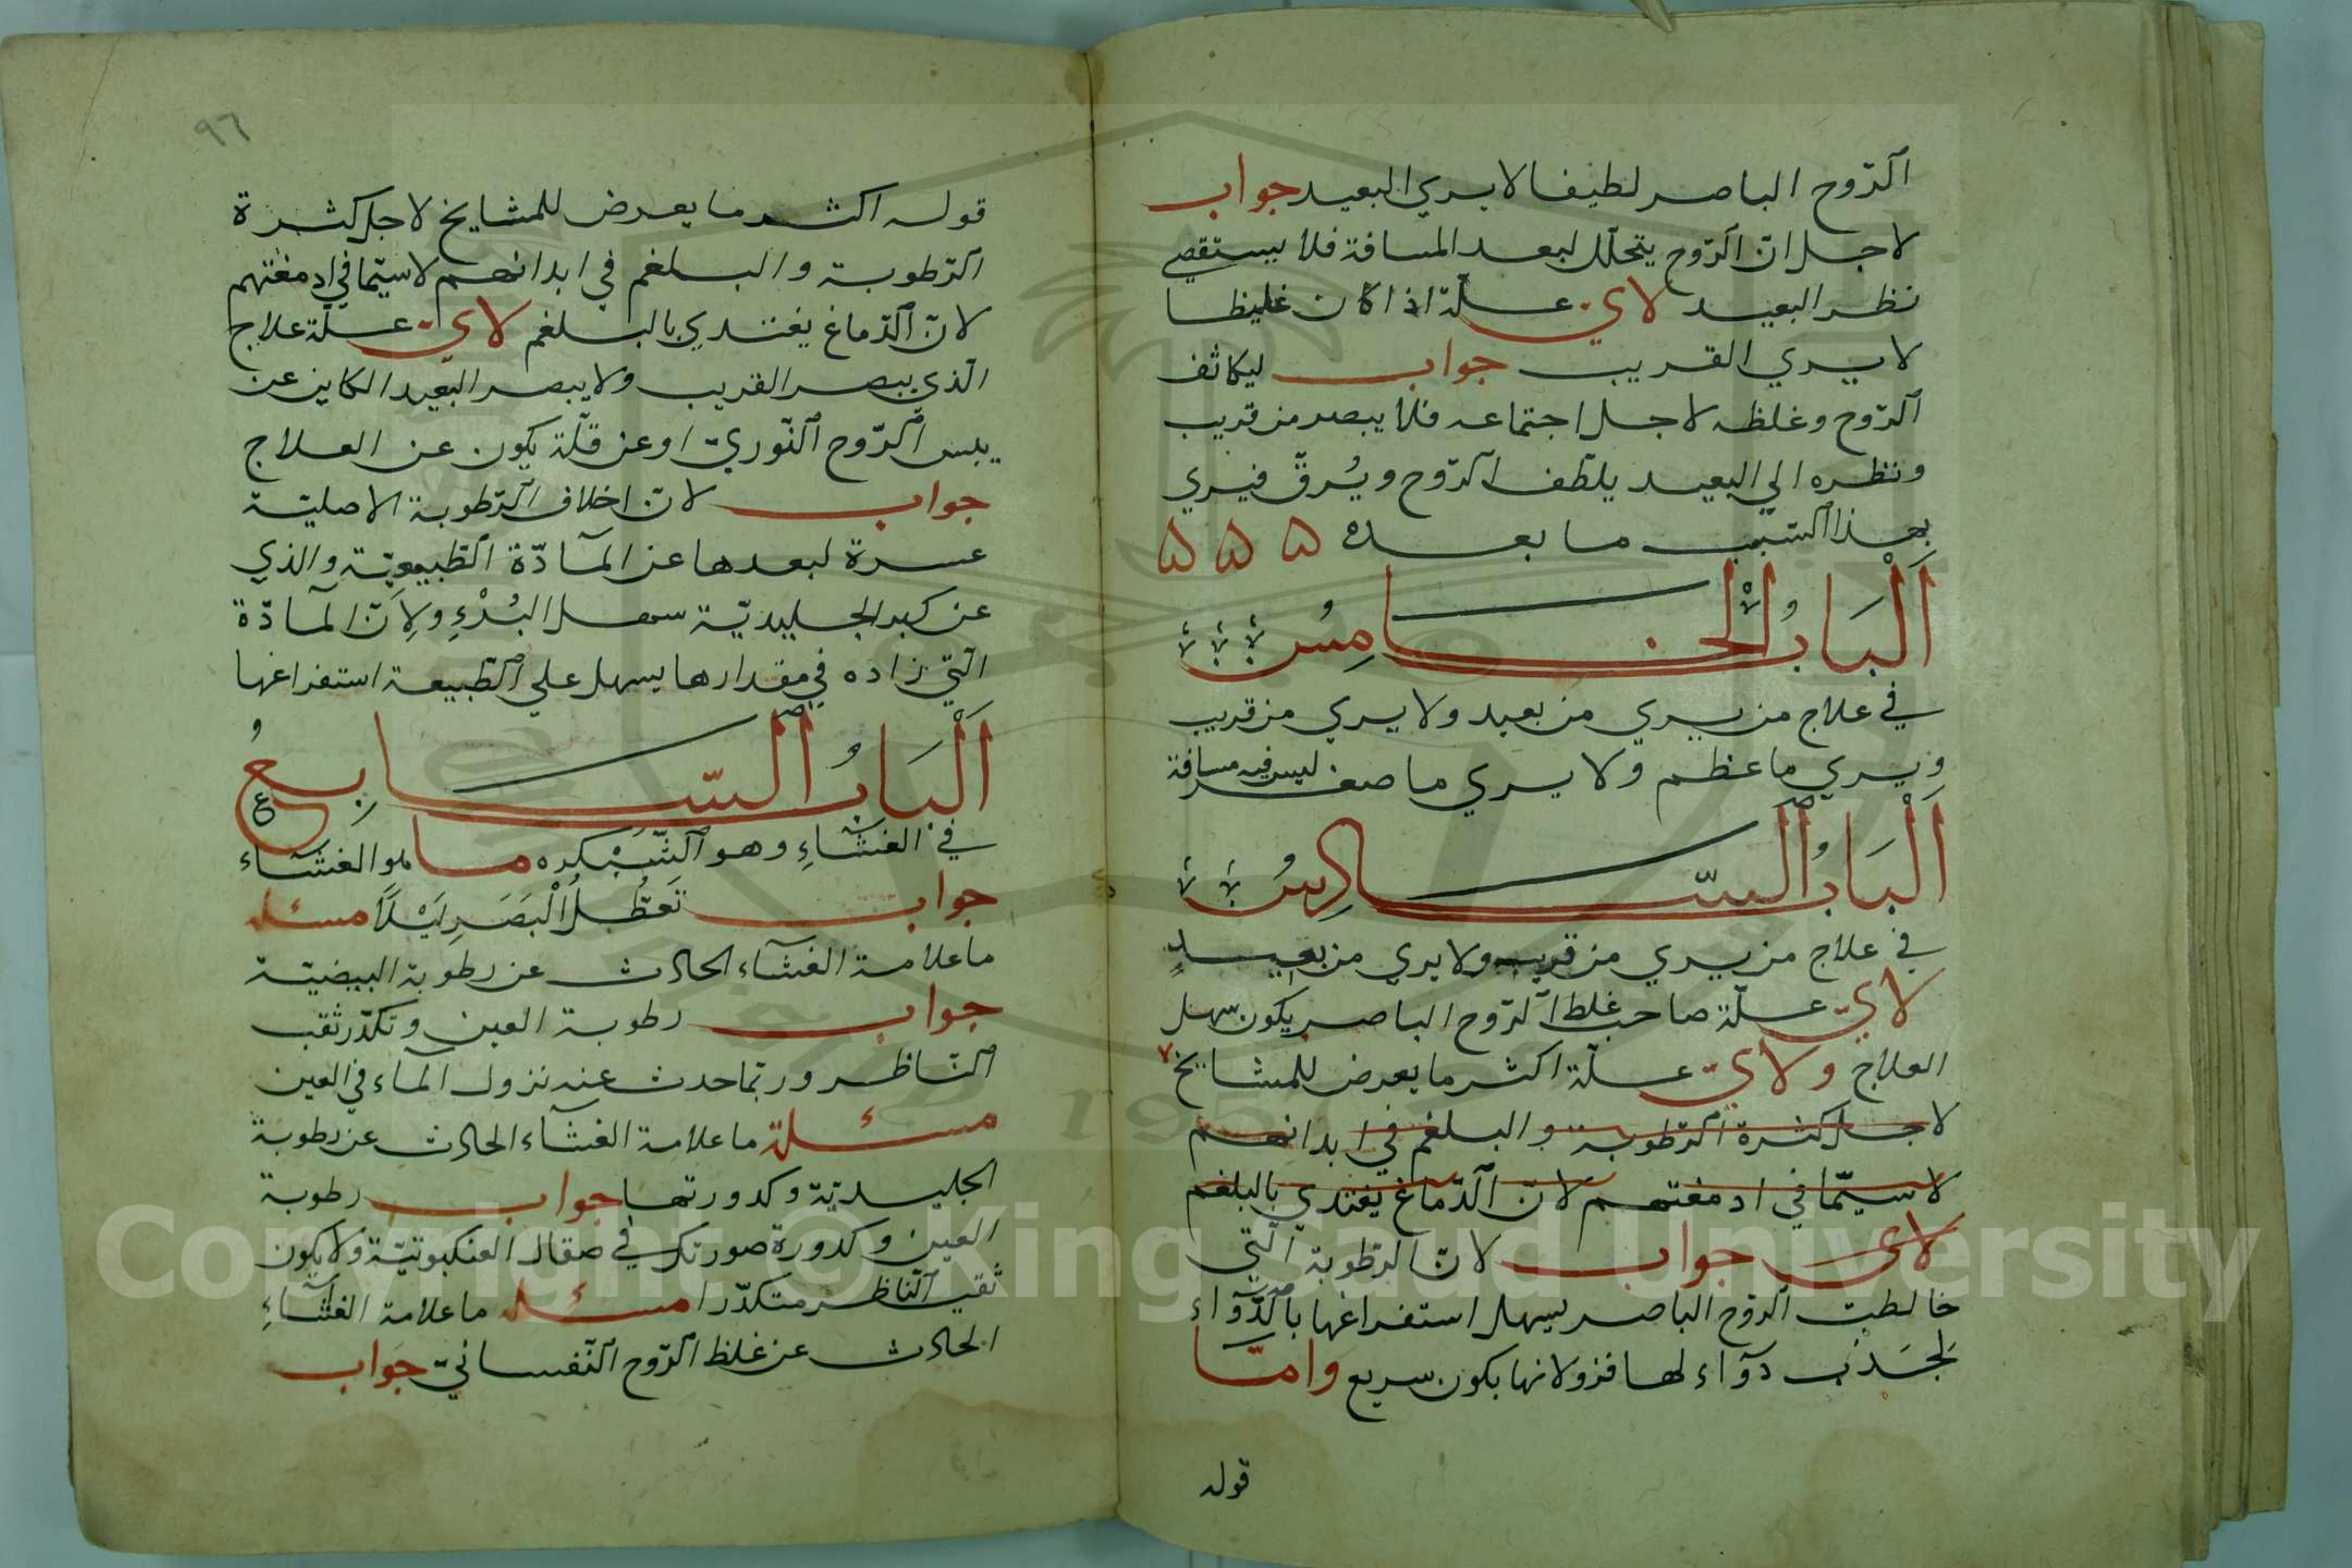 الرّوح الباصر لطيفا لا يري البعيد جواب
لاجل انّ الرّوح يتحلّل لبعد المسافة فلا يستقصي
نظر البعيد لايّ علّة اذا كان غليظا
لا يري القريب جواب ليكاثف
الرّوح وغلظه لاجل اجتماعه فلا يبصر من قريب
ونظره الي البعيد يلطّف الرّوح ويُرقّ فيري
بهذا السّبب ما بعده ۵ ۵ ۵
اَلْبَابُ الْخَامِسُ
في علاج من يري من بعيد ولا يري من قريب
ويري ما عظم ولا يري ما صغر ليس فيه مسافة
اَلْبَابُ السَّادِسُ
في علاج من يري من قريب ولا يري من بعيدٍ
لايّ علّة صاحب غلظ الرّوح الباصر يكون سهل
العلاج ولايّ علّة اكثر ما يعرض للمشايخ ٧
لاجل كثرة الرّطوبة والبلغم في ابدانهم
لا سيّما في ادمغتهم لانّ الدّماغ يغتدي بالبلغم
لاي جواب لانّ الرّطوبة الّتي
خالطت الرّوح الباصر يسهل استفراغها بالدّوآء
لجذب دوآء لها فزولانها يكون سريع وامّا
قوله
٩٦
قوله اكثر ما يعرض للمشايخ لاجل كثرة
الرّطوبة والبلغم في ابدانهم لا سيّما في ادمغتهم
لانّ الدّماغ يغتدي بالبلغم لايّ علّة علاج
الّذي يبصر القريب ولا يبصر البعيد الكاين عن
يبس الرّوح النّوريّ او عن قلّة يكون عن العلاج
جواب لانّ اخلاف الرّطوبة الاصليّة
عسرة لبعدها عن المآدّة الطّبيعيّة والذي
عن كبر الجليديّة سهل البُرْءِ ولِاَنّ المآدّة
الّتي زاده في مقدارها يسهل علي الطّبيعة استفراغها
اَلْبَابُ السَّابِعُ
في الغشَاءِ وهو الشّبكره ما هو الغشاء
جواب تَعَطُّلُ الْبَصَرِ لَيْلًا مسئله
ما علامة الغشآء الحادث عن رطوبة البيضيّة
جواب رطوبة العين وتكدّر ثقب
النّاظر وربّما حدث عنه نزول المآء في العين
مسئلة ما علامة الغشآء الحادث عن رطوبة
الجليديّة وكدورتها جواب رطوبة
العين وكدورة صورتك في صقال العنكبوتيّة ولا يكون
ثقب النّاظر متكدّرا مسئله ما علامة الغشآءِ
الحادث عن غلظ الرّوح النّفسانيّ جواب
Copyright © King Saud University
1957